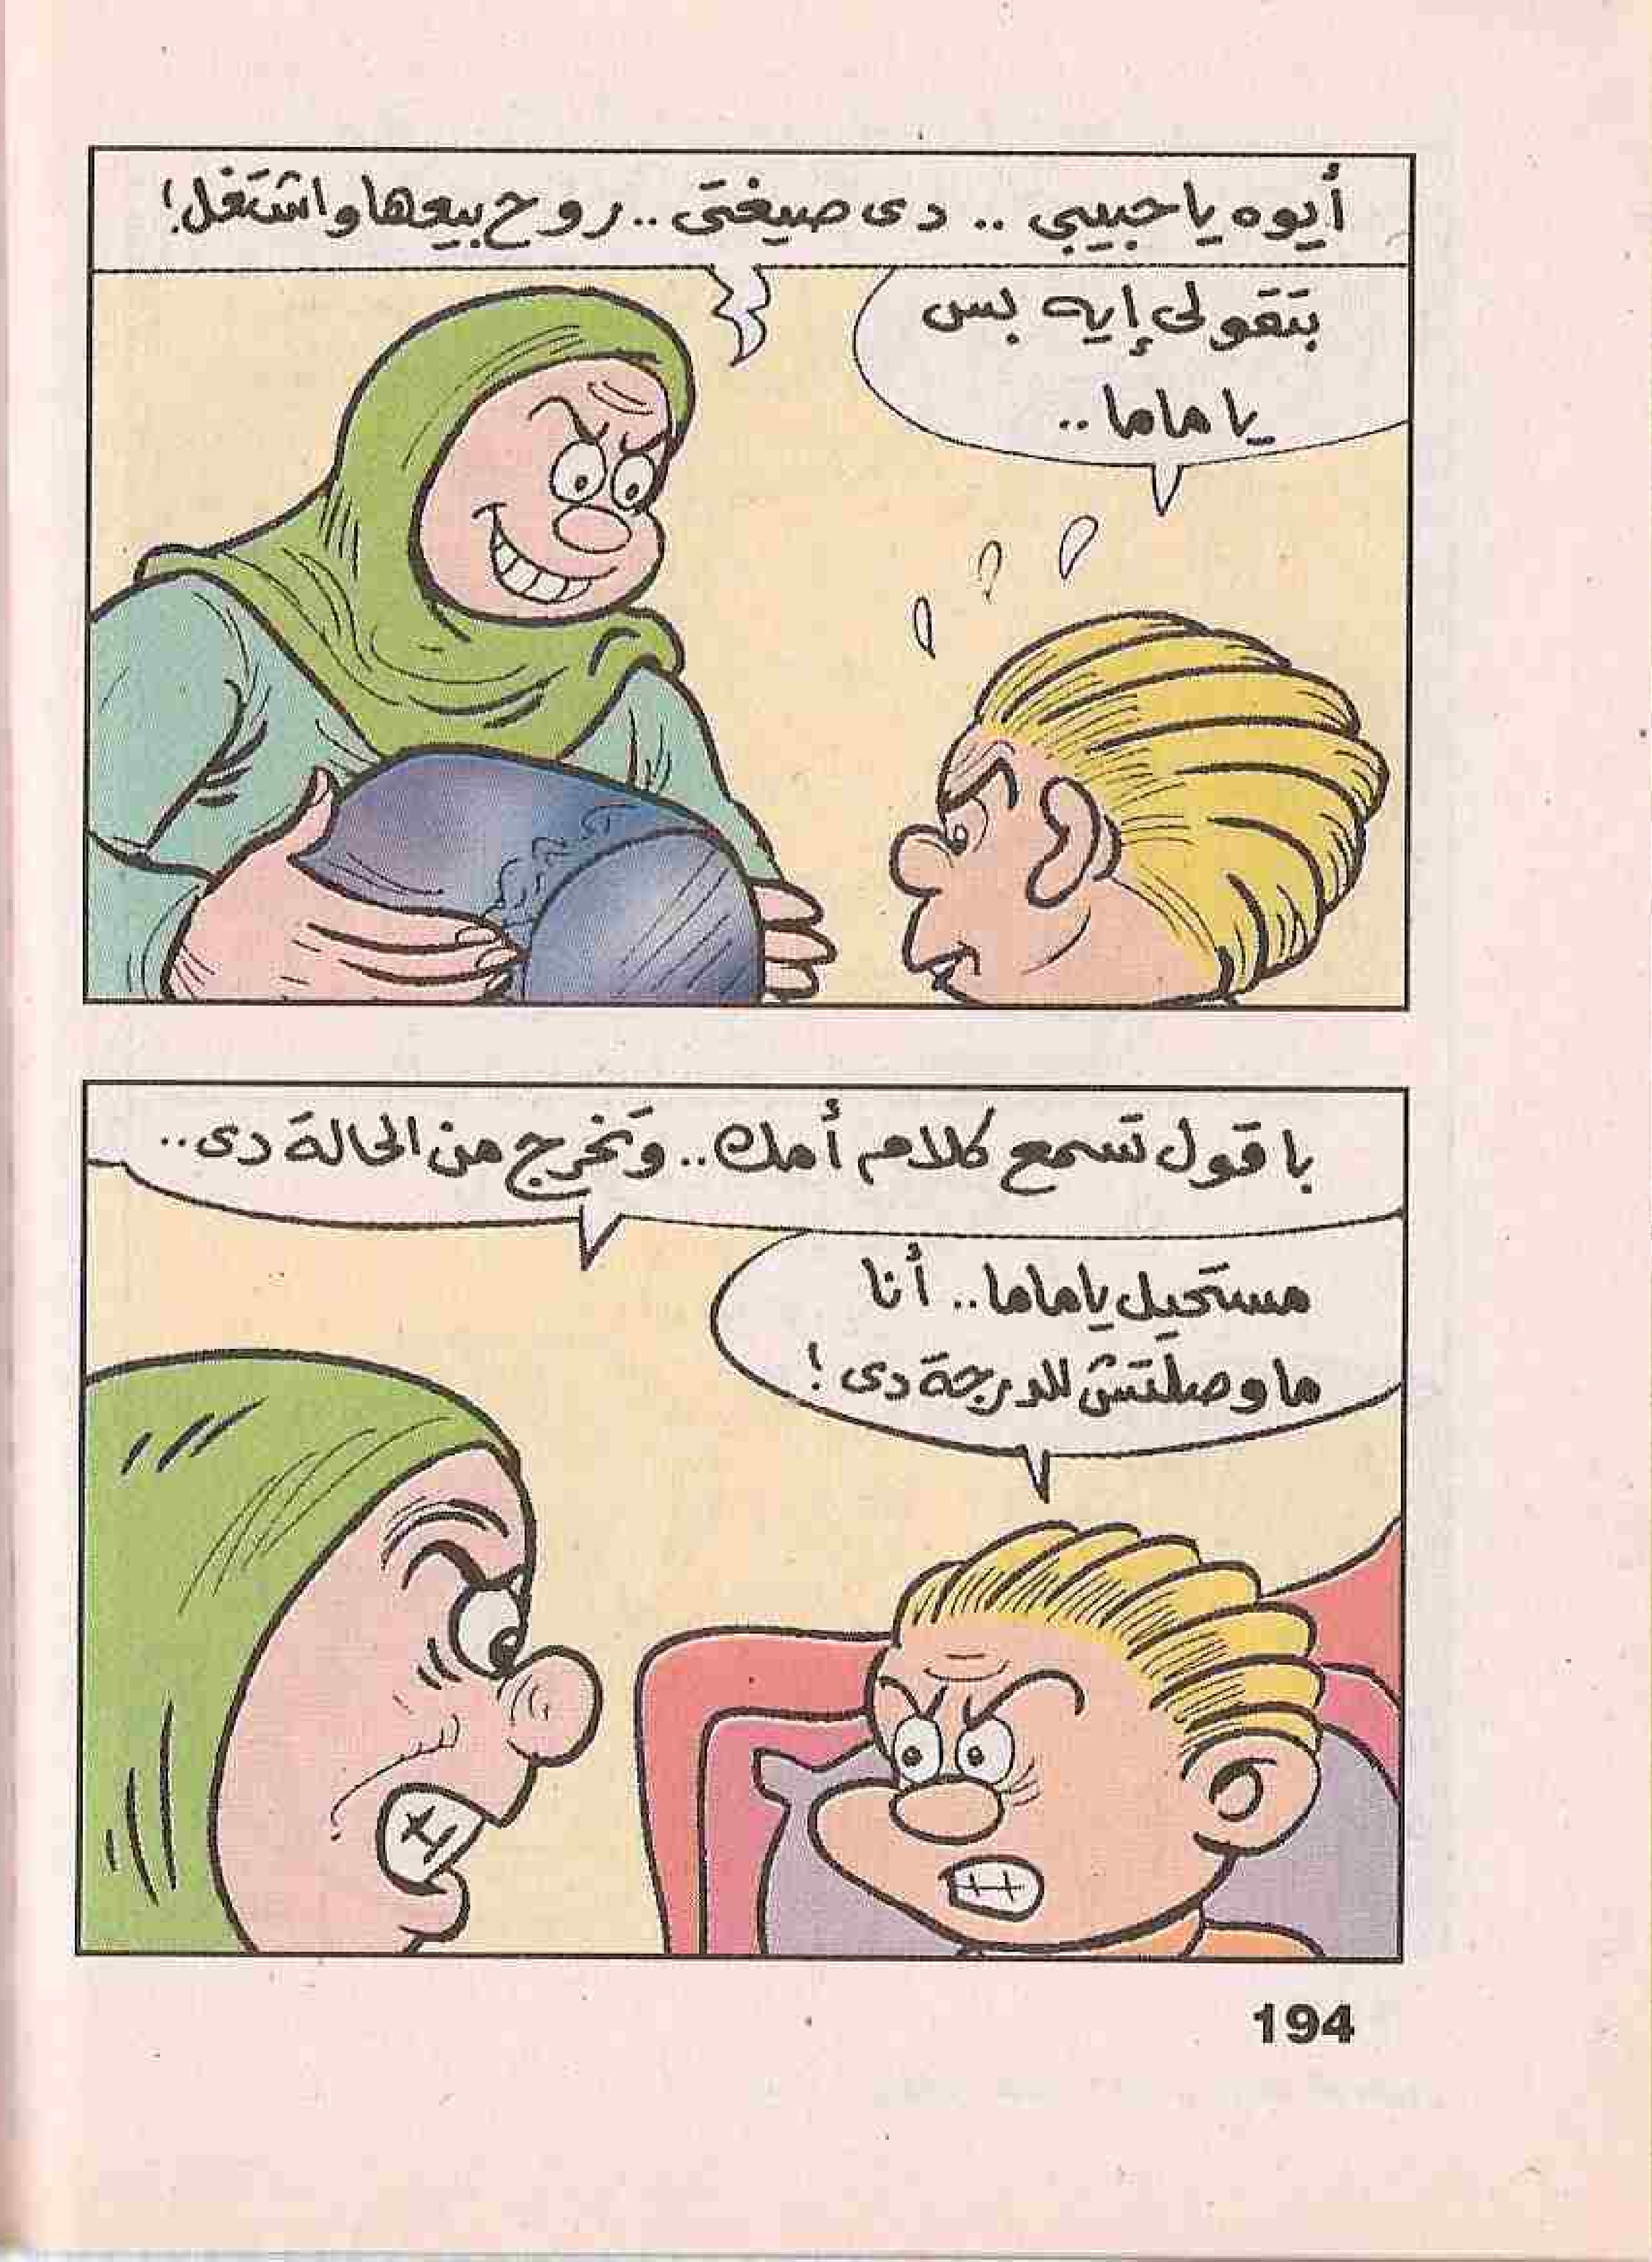 أيوه يا حبيبي .. دى صيغتى .. روح بيعها واشتغل!
بتقولى إيه بس
يا ماما ..
باقول تسمع كلام أمك .. وتخرج من الحالة دى ..
مستحيل ياماما .. أنا
ما وصلتش للدرجة دى !
194